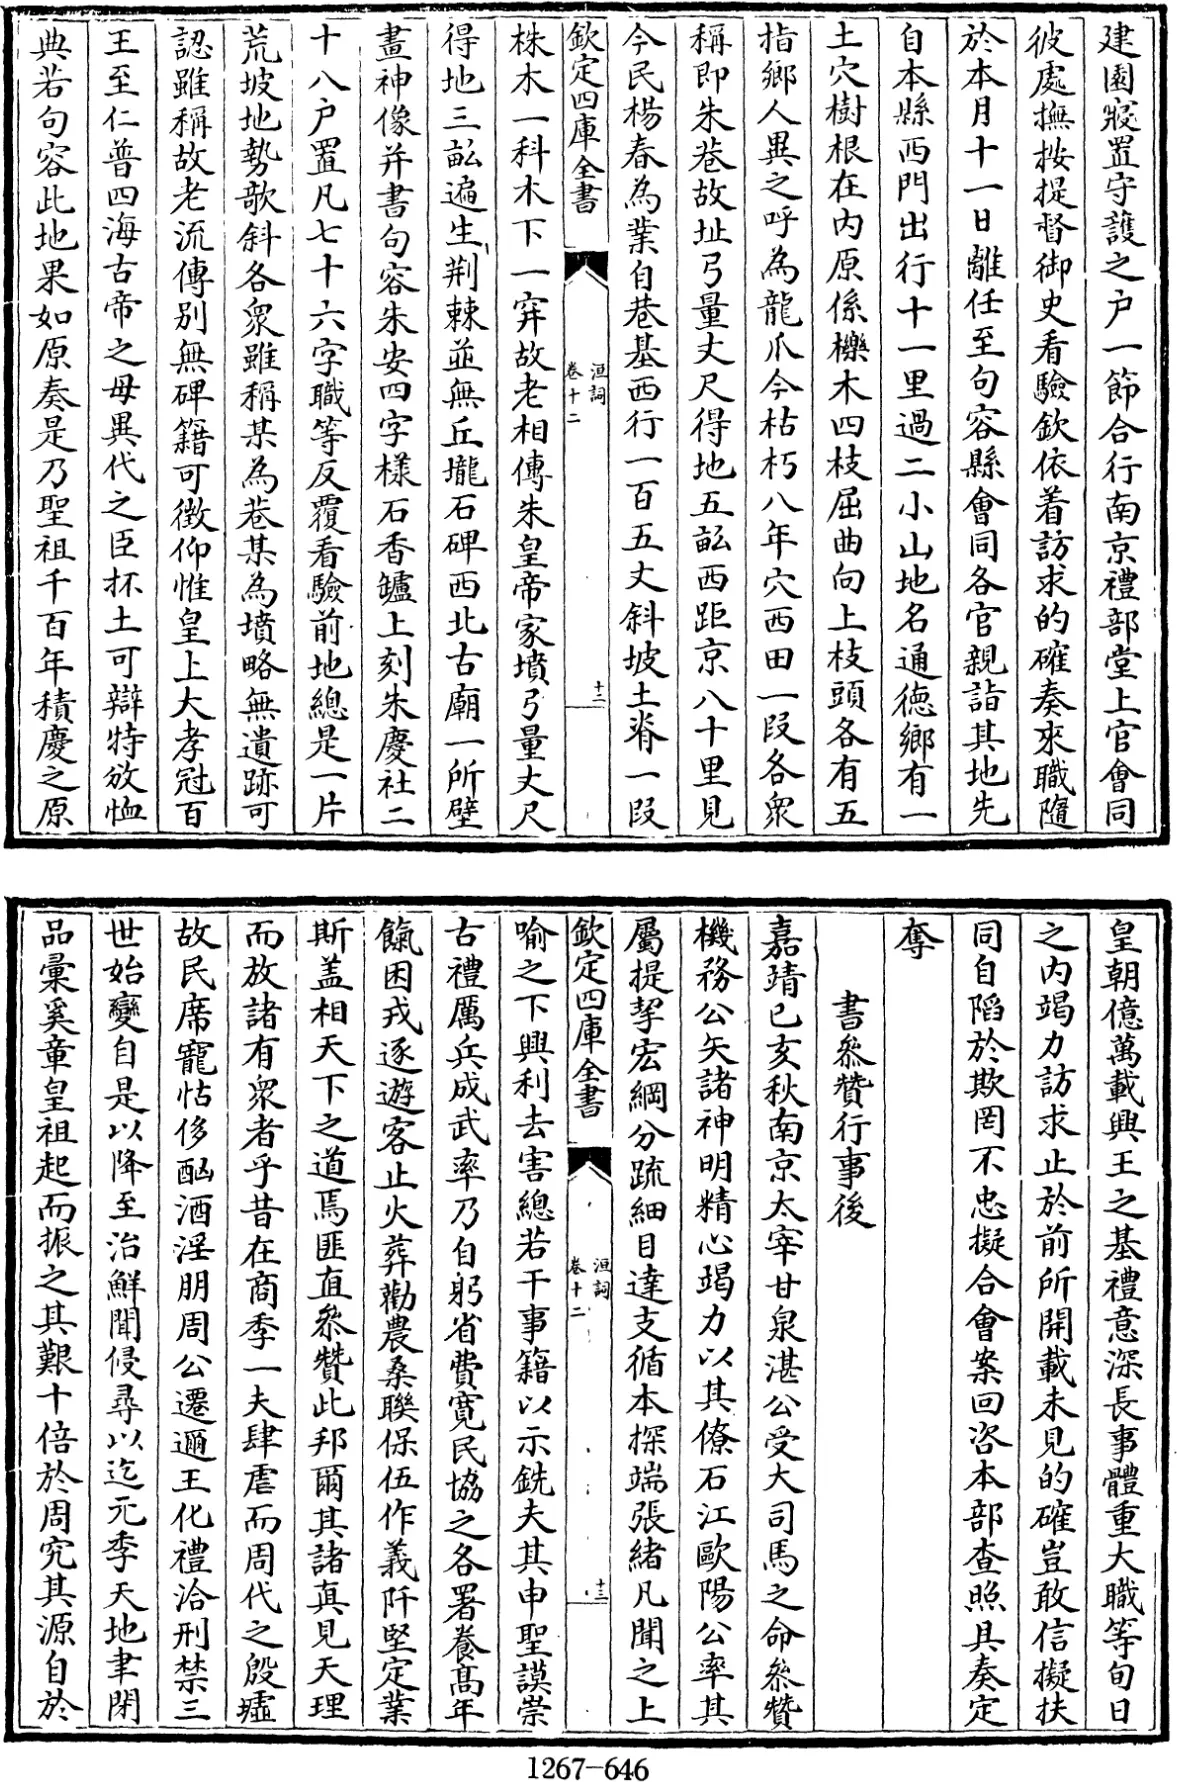 建園寢置守護之户一節合行南京禮部堂上官會同
彼處撫按提督御史看驗欽依着訪求的確奏來職隨
於本月十一日離任至句容縣會同各官親詣其地先
自本縣西門出行十一里過二小山地名通德鄉有一
土穴樹根在内原係櫟木四枝屈曲向上枝頭各有五
指鄉人異之呼為龍爪今枯朽八年穴西田一段各衆
稱即朱巷故址弓量丈尺得地五畝西距京八十里見
今民楊春為業自巷基西行一百五丈斜坡土脊一段
欽定四庫全書
洹詞
卷十二
十二
株木一科木下一穽故老相傳朱皇帝家墳弓量丈尺
得地三畝遍生荆棘並無丘壠石碑西北古廟一所壁
畫神像并書句容朱安四字樣石香罏上刻朱慶社二
十八户置凡七十六字職等反覆看驗前地總是一片
荒坡地勢欹斜各衆雖稱某為巷某為墳略無遺跡可
認雖稱故老流傳别無碑籍可徵仰惟皇上大孝冠百
王至仁普四海古帝之母異代之臣抔土可辯特放恤
典若句容此地果如原奏是乃聖祖千百年積慶之原
皇朝億萬載興王之基禮意深長事體重大職等旬日
之内竭力訪求止於前所開載未見的確豈敢信擬扶
同自䧟於欺罔不忠擬合會案回咨本部查照具奏定
奪
書叅贊行事後
嘉靖已亥秋南京太宰甘泉湛公受大司馬之命叅贊
機務公矢諸神明精心竭力以其僚石江歐陽公率其
屬提挈宏綱分疏細目達支循本探端張緒凡聞之上
欽定四庫全書
洹詞
卷十二
十三
喻之下興利去害總若干事籍以示銑夫其申聖謨崇
古禮厲兵成武率乃自躬省費寛民協之各署養髙年
餼困戎逐遊客止火葬勸農桑聯保伍作義阡堅定業
斯盖相天下之道焉匪直叅贊此邦爾其諸真見天理
而放諸有衆者乎昔在商季一夫肆虐而周代之殷墟
故民席寵怙侈酗酒淫朋周公遷邇王化禮洽刑禁三
世始變自是以降至治鮮聞侵尋以迄元季天地聿閉
品彙奚章皇祖起而振之其艱十倍於周究其源自於
1267-646